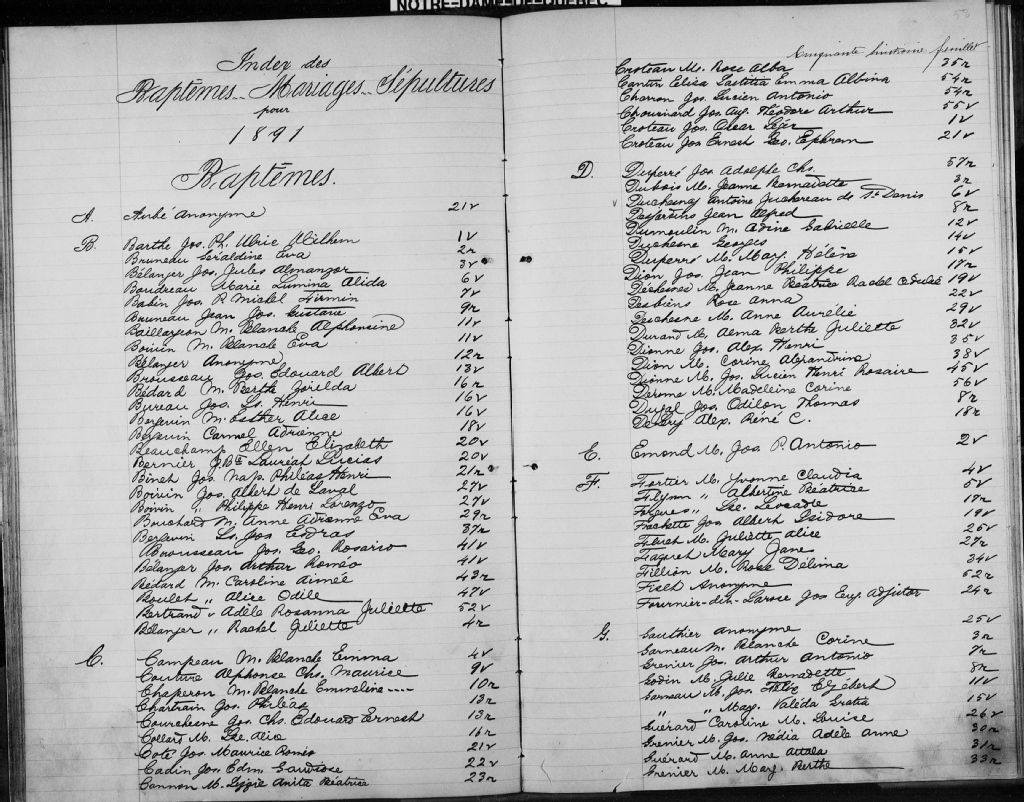 NOTRE-DAME-DE-QUEBEC
Index des
Baptêmes Mariages Sépultures
pour
1891
Baptêmes.
A. Aubé Anonyme 21v
B. Barthe Jos. Ph. Ulric Wilhem 1v
Bruneau Géraldine Eva 2r
Bélanger Jos. Jules Almanzor 3v
Boudreau Marie Lumina Alida 6v
Babin Jos. P. Michel Firmin 7v
Bruneau Jean Jos. Gustave 9r
Baillargeon M. Blanche Alphonsine 11v
Boivin M. Blanche Eva 11v
Bélanger Anonyme 12r
Brousseau Jos. Edouard Albert 13v
Bédard M. Berthe Zorilda 16r
Bureau Jos. Ls. Henri 16v
Bergevin M. Esther Alice 16v
Bergevin Carmel Adrienne 18v
Beauchamp Ellen Elizabeth 20v
Bernier J.Bte Lauréat Lucias 20v
Binet Jos. Nap. Philéas Henri 21r
Boivin Jos. Albert de Laval 27v
Boivin " Philippe Henri Lorenzo 27v
Bouchard M. Anne Adrienne Eva 29r
Bergevin Ls. Jos. Esdras 37r
Brousseau Jos. Geo. Rosario 41v
Bélanger Jos. Arthur Roméo 41v
Bédard M. Caroline Aimée 43r
Boulet " Alice Odile 47v
Bertrand " Adèle Rosanna Juliette 52v
Bélanger " Rachel Juliette 4r
C. Campeau M. Blanche Emma 4v
Couture Alphonse Chs. Maurice 9v
Chaperon M. Blanche Emmeline ---- 10r
Chartrain Jos. Philéas 13r
Courchesne Jos. Chs. Edouard Ernest 13r
Collard M. Lse. Alice 16r
Coté Jos. Maurice Roméo 21v
Cadin Jos. Edm. 22v
Cannon M. Lizzie Anita Béatrice 23r
53
Cinquante feuillet
Croteau M. Rose Alba 35r
Cantin Eliza Laetitia Emma Albina 54r
Charron Jos. Lucien Antonio 54r
Chouinard Jos. Aug. Théodore Arthur 55v
Croteau Jos. Oscar 1v
Croteau Jos. Ernest Geo. Ephrem 21v
D. Duperré Jos. Adolphe Chs. 57r
Dubois M. Jeanne Bernadette 3r
v Duchesnay Antoine Juchereau de St Denis 6v
Desjardins Jean Alfred 8r
Dumoulin M. Adine Gabrielle 12v
Duchesne Georges 14v
Duperré M. Marg. Hélène 15v
Dion Jos. Jean Philippe 17r
Déchêne M. Jeanne Béatrice Rachel 19v
Desbiens Rose Anna 22v
Duchesne M. Anne Aurélie 29v
Durand M. Alma Berthe Juliette 32v
Dionne Jos. Alex. Henri 35v
Dion M. Corine Alexandrina 38v
Dionne M. Jos. Lucien Henri Rosaire 45v
Derome M. Madeleine Corine 56v
Duval Jos. Odilon Thomas 8r
DeLéry Alex. Réné C. 18r
E. Emond M. Jos. P. Antonio 2v
F. Fortier M. Yvonne Claudia 4v
Flynn " Albertine Béatrice 5v
Fugères " Lse. Léocadie 17r
Frechette Jos. Albert Isidore 19v
Fiset M. Juliette Alice 25v
Mary Jane 27r
Fillion M. Rose Délima 34v
Fiset Anonyme 52r
Fournier-dit-Larose Jos. Eug. Adjutor 24r
G. Gauthier Anonyme 25v
Garneau M. Blanche Corine 3r
Grenier Jos. Arthur Antonio 7r
Godin M. Julie Bernadette 8r
Garneau M. Jos. Félix Elzébert 11v
" " Marg. Valéda Gratia 15v
Guérard Caroline M. Louise 26v
Grenier M. Jos. Védia Adèle Anne 30r
Guérard M. Anne Attala 31r
Grenier M. Marg. Berthe 33r